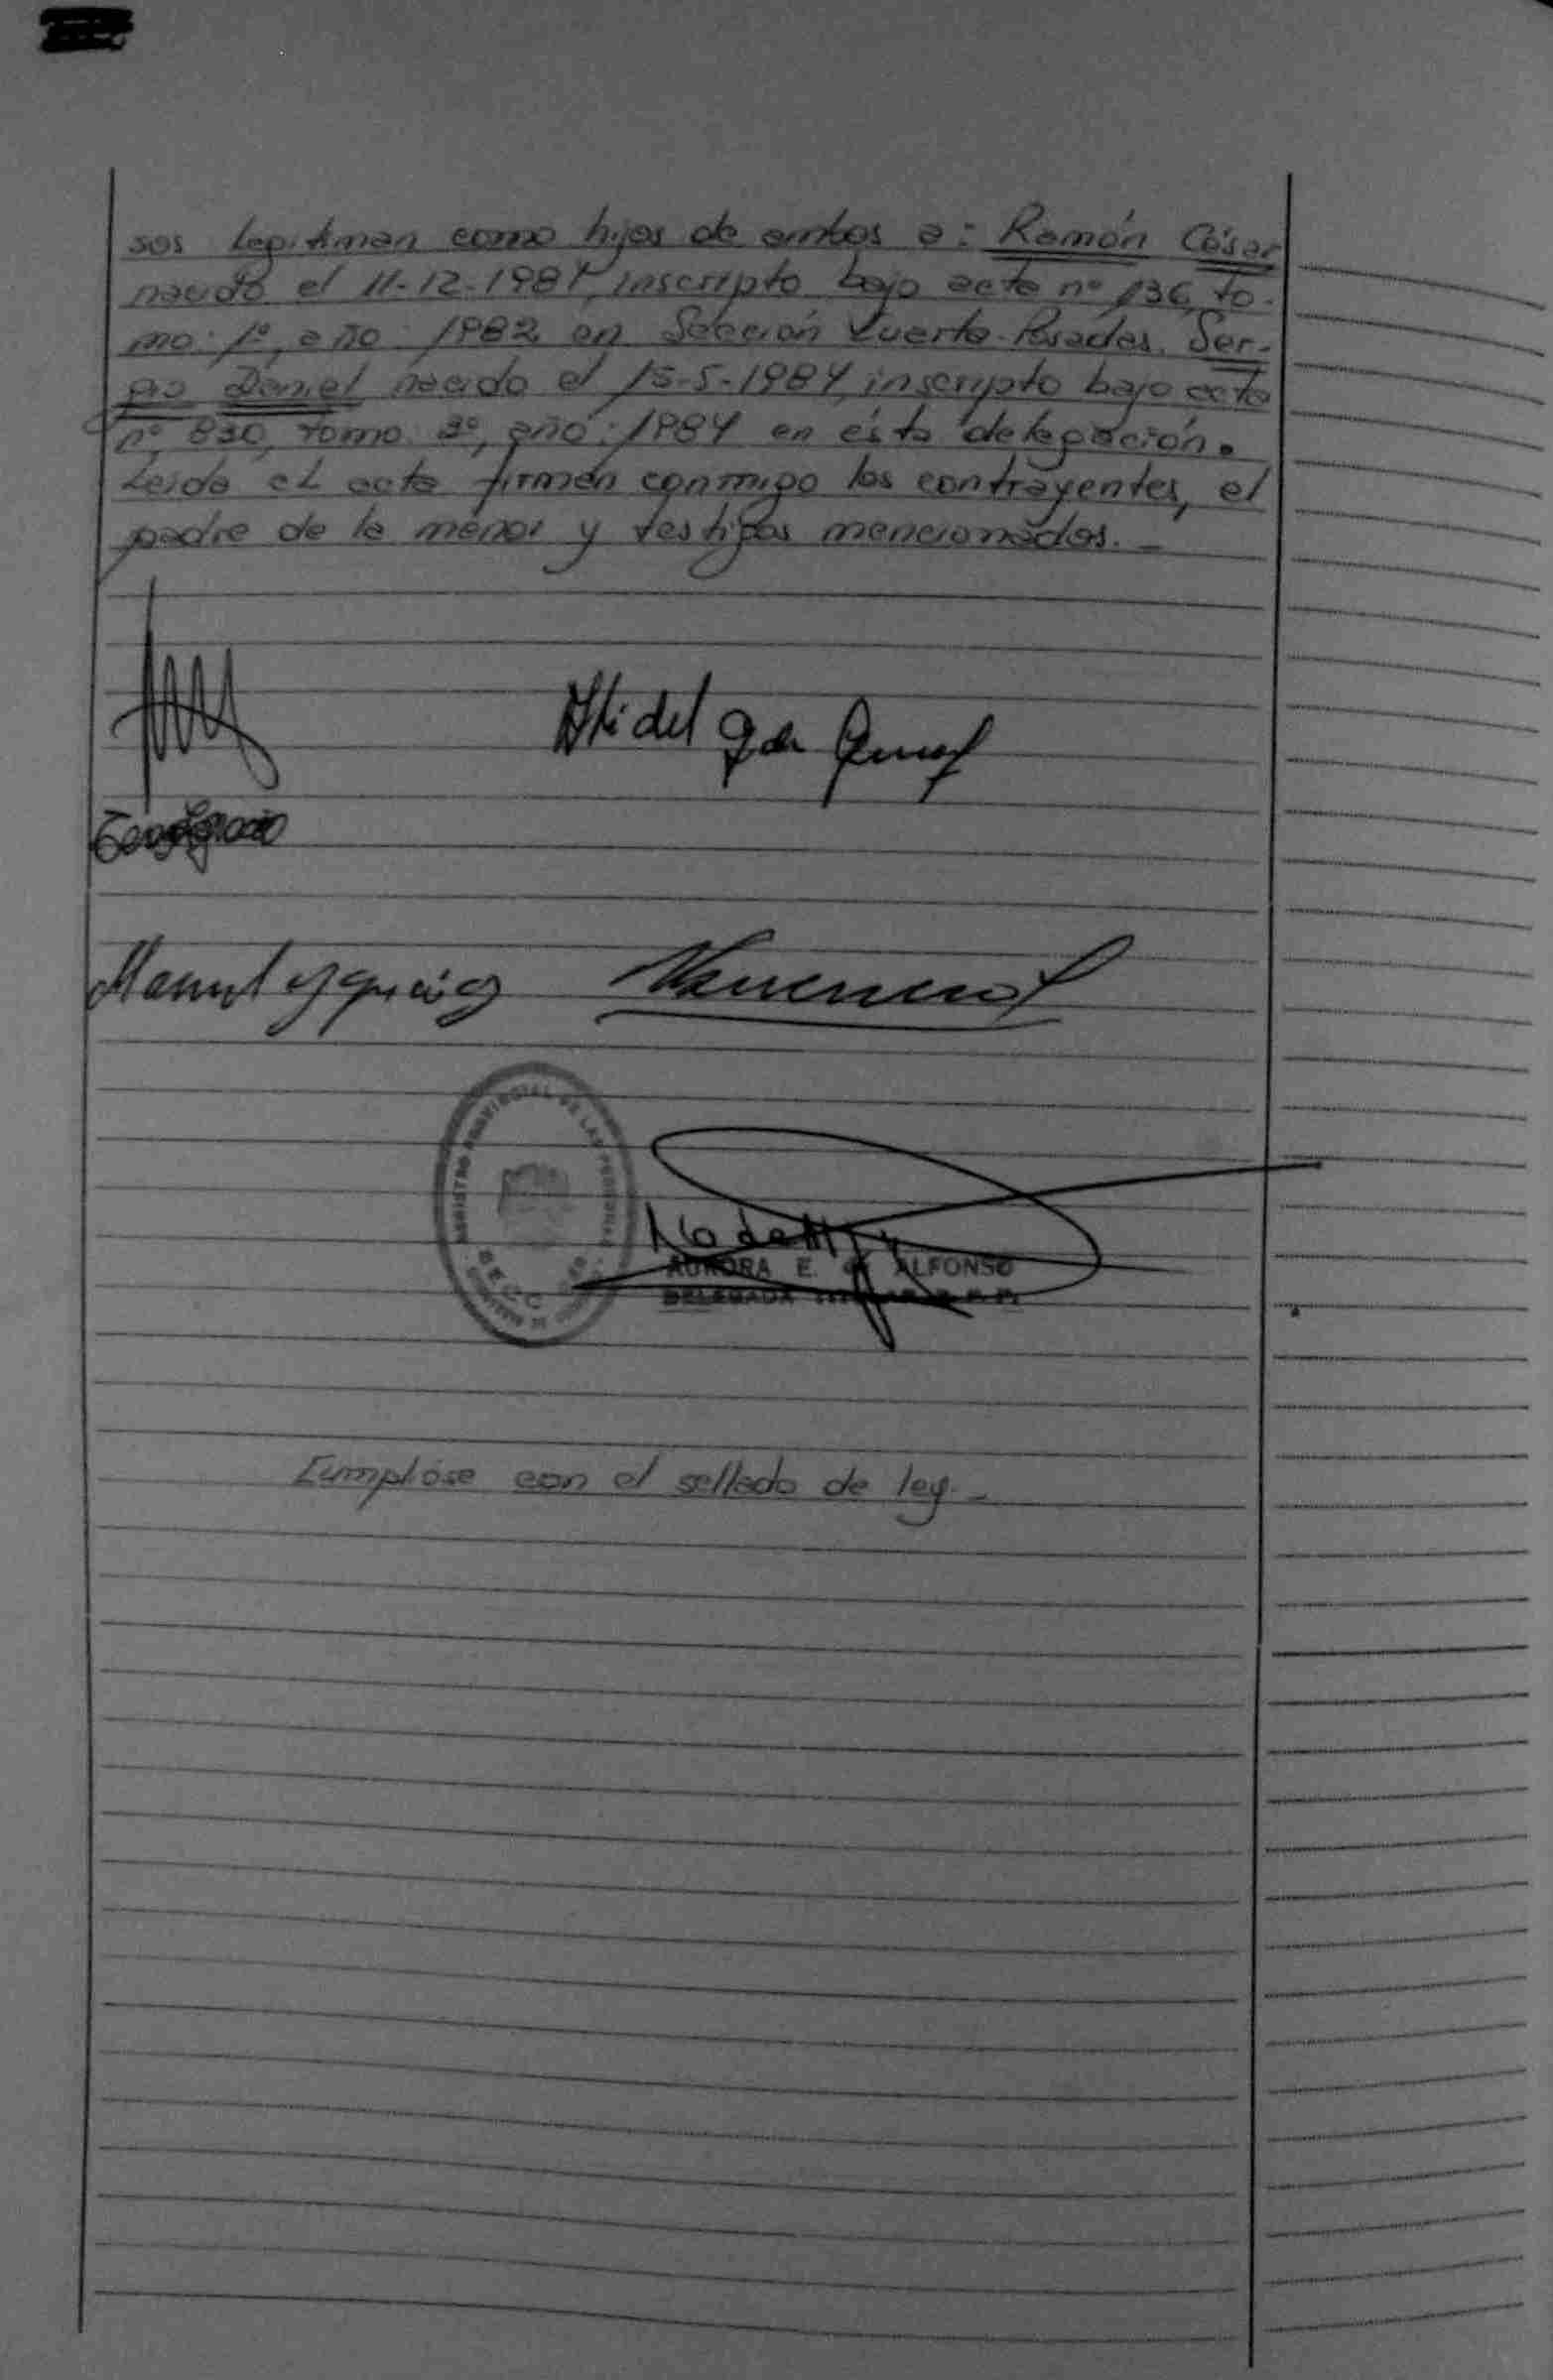 sos legitiman como hijos de ambos a: Ramón César
nacido el 11-12-1981, inscripto bajo acta nº 136, to-
mo: 1º, año: 1982 en Sección Cuarta-Posadas. Ser-
gio Daniel nacido el 15-5-1984, inscripto bajo acta
nº 830, tomo 3º, año: 1984 en ésta delegación.
Leída el acta firman conmigo los contrayentes, el
padre de la menor y testigos mencionados. _
Manuel
REGISTRO PROVINCIAL DE LAS PERSONAS
AURORA E. de ALFONSO
DELEGADA
Cumplióse con el sellado de ley. _